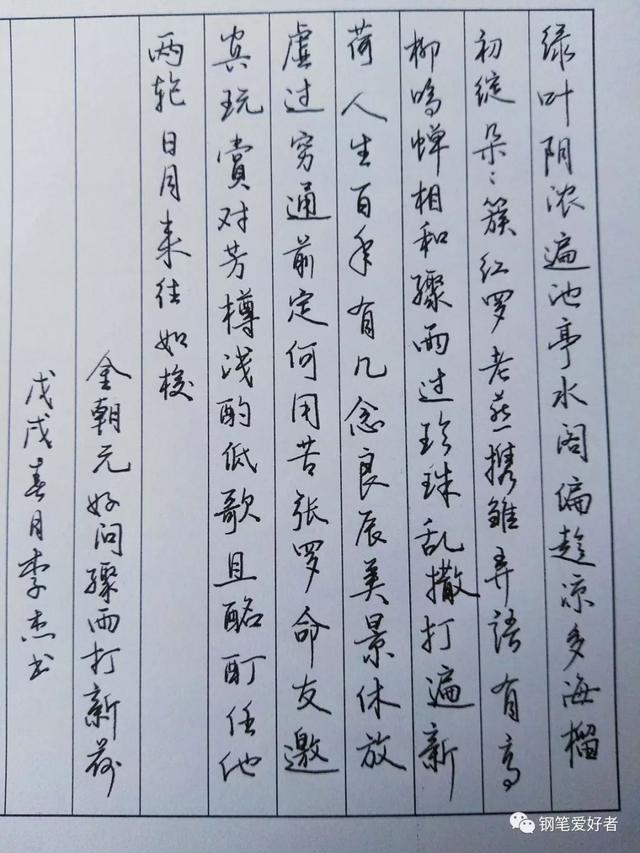 绿叶阴浓遍池亭水阁偏趁凉多海榴
初绽朵〻簇红罗老燕携雏弄语有高
柳鸣蝉相和骤雨过珍珠乱撒打遍新
荷人生百年有几念良辰美景休放
虚过穷通前定何用苦张罗命友邀
宾玩赏对芳樽浅酌低歌且酩酊任他
两轮日月来往如梭
金朝元好问骤雨打新荷
戊戌春月李杰书
钢笔爱好者